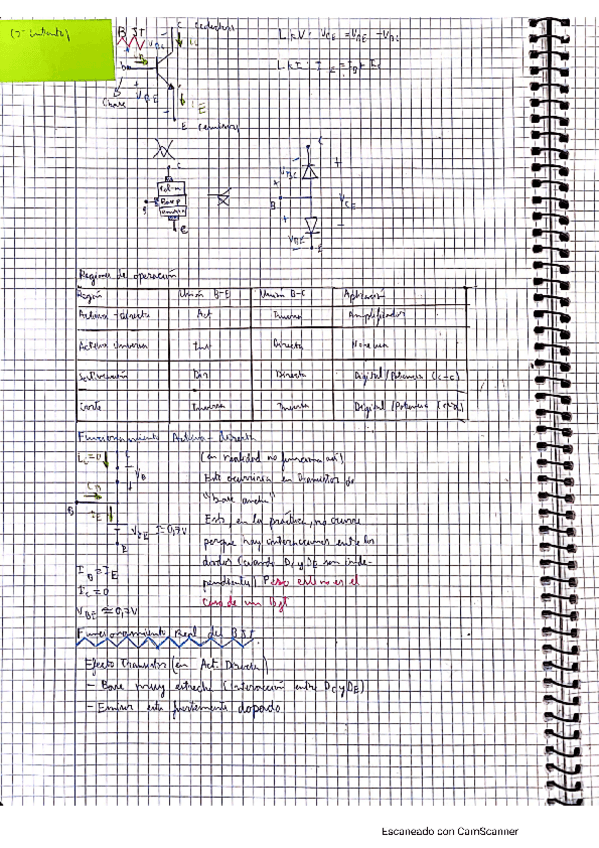 BJT
C (colector)
LKV: VCE = VBE - VBC
LKI: IE = IB + IC
(base
VBE
IE
E (emisor)
C
Base p
B
E
VBC
VCE
VBE
Regiones de operación
Región Unión B-E Unión B-C Aplicación
Activa-directa Act Inversa Amplificador
Activa inversa Directa No se usa
Saturación Dir Directa Digital/Potencia (c-c)
Corte Inversa Inversa Digital/Potencia
Funcionamiento Activa-directa
IC=0
(en realidad no funciona así)
Esto ocurriría en transistor de
"base ancha"
Esto, en la práctica, no ocurre
porque hay interacciones entre los
diodos (cuando DC y DE son inde-
pendientes) Pero este no es el
caso de un bjt
B
IE
VBE = 0,7V
E
IB = IE
IC = 0
VBE ≈ 0,7V
Funcionamiento Real del BJT
Efecto transistor (en Act Directa)
- Base muy estrecha (interacción entre DC y DE)
- Emisor esta fuertemente dopado
Escaneado con CamScanner